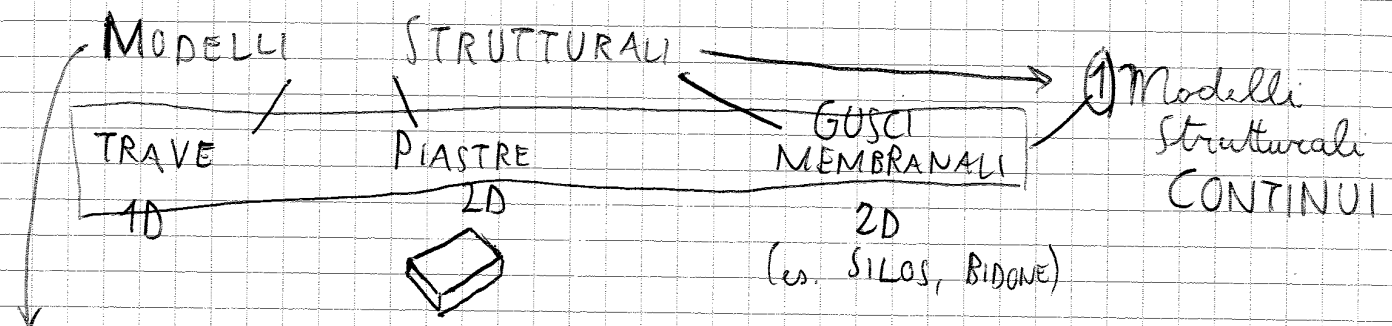 MODELLI STRUTTURALI
① Modelli
strutturali
CONTINUI
TRAVE PIASTRE GUSCI
MEMBRANALI
1D 2D 2D
(es. SILOS, BIDONE)